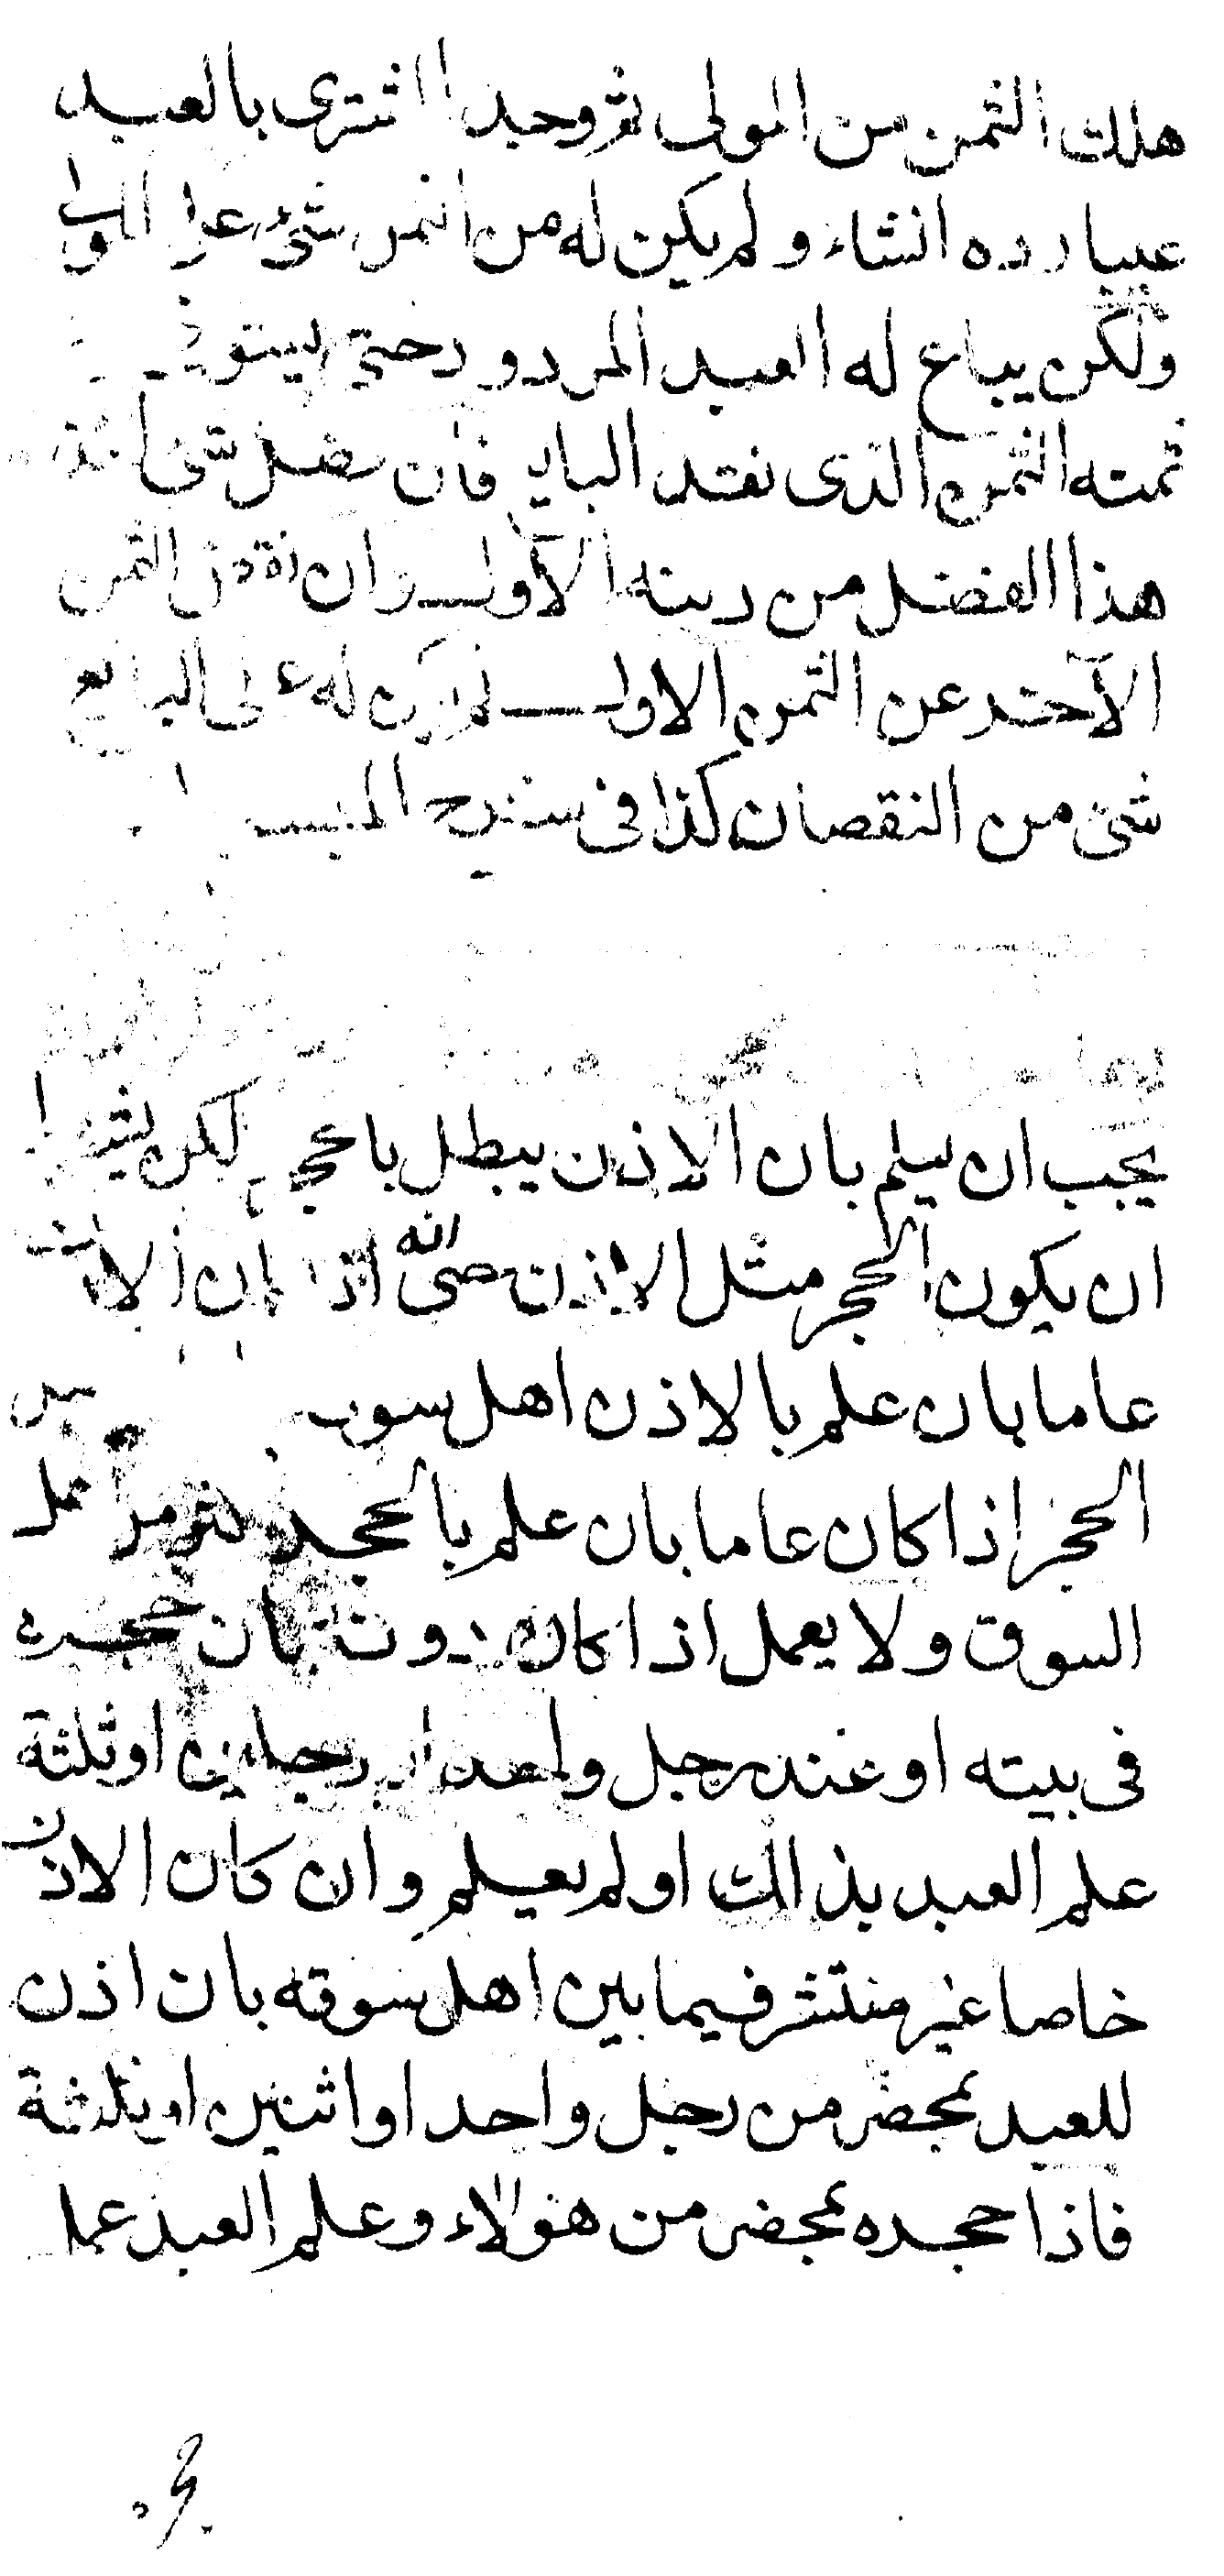 هلك الثمن من المولى ثم وجد المشترى بالعبد
عيبا رده انشاء ولم يكن له من الثمن شئ على المولى
ولكن يباع له العبد المردود حتى يستوفى
ثمنه الثمن الذى نقد البايع فان فضل شئ
هذا الفضل من دينه الاول وان نقص الثمن
الآخر عن الثمن الاول لم يكن له على البايع
شئ من النقصان كذا فى شرح
يجب ان يعلم بان الاذن يبطل بالحجر لكن يشترط
ان يكون الحجر مثل الاذن حتى انه اذا كان الاذن
عاما بان علم بالاذن اهل سوقه
الحجر اذا كان عاما بان علم بالحجر اكثر
السوق ولا يعمل اذا كان دونه بان حجره
فى بيته او عند رجل واحد او رجلين او ثلثة
علم العبد بذالك او لم يعلم وان كان الاذن
خاصا غير منتشر فيما بين اهل سوقه بان اذن
للعبد بمحضر من رجل واحد او اثنين او ثلاثة
فاذا حجره بمحضر من هؤلاء وعلم العبد عمل